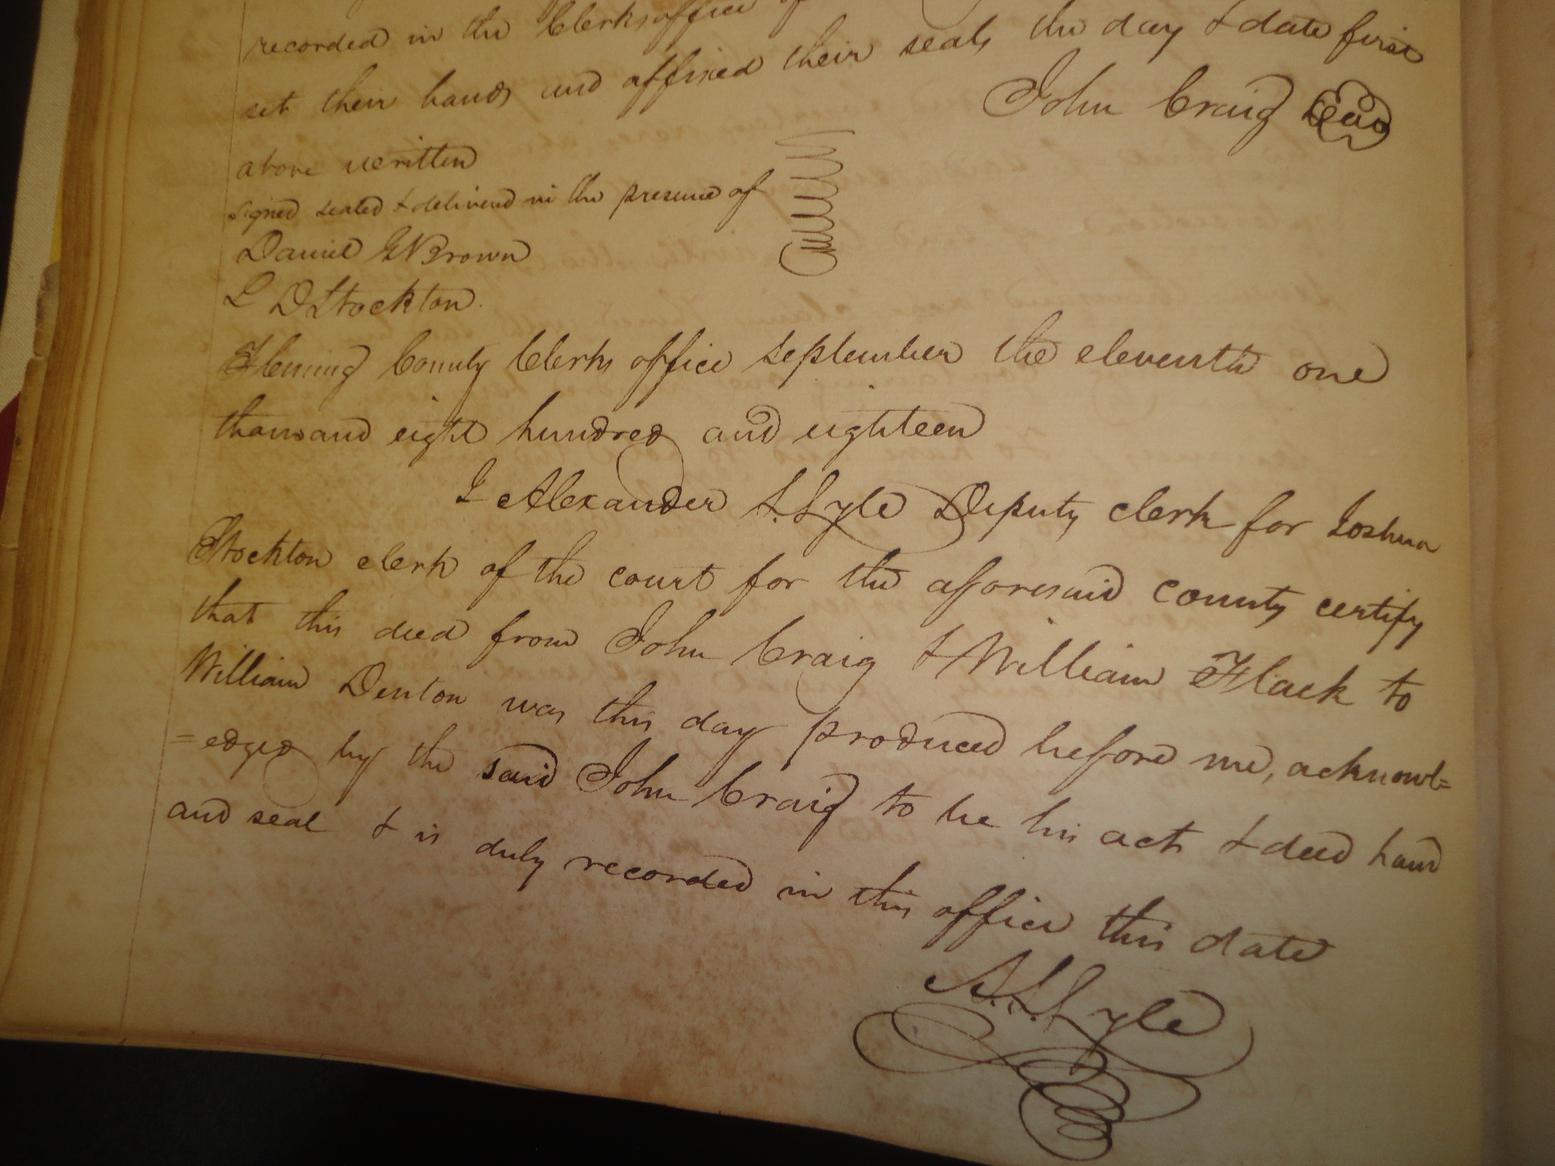 recorded in the Clerks office of
set their hands and affixed their seals the day & date first
John Craig Seal
above written
signed sealed & deliverd in the presence of
Daniel G Brown
L D Stockton.
Fleming County Clerks office september the eleventh one
thousand eight hundred and eighteen
I Alexander S. Lyle Deputy clerk for Joshua
Stockton clerk of the court for the aforesaid county certify
that this deed from John Craig & William Flack to
William Denton was this day produced before me, acknowl=
=edged by the said John Craig to be his act & deed hand
and seal & is duly recorded in this office this date
A. S. Lyle